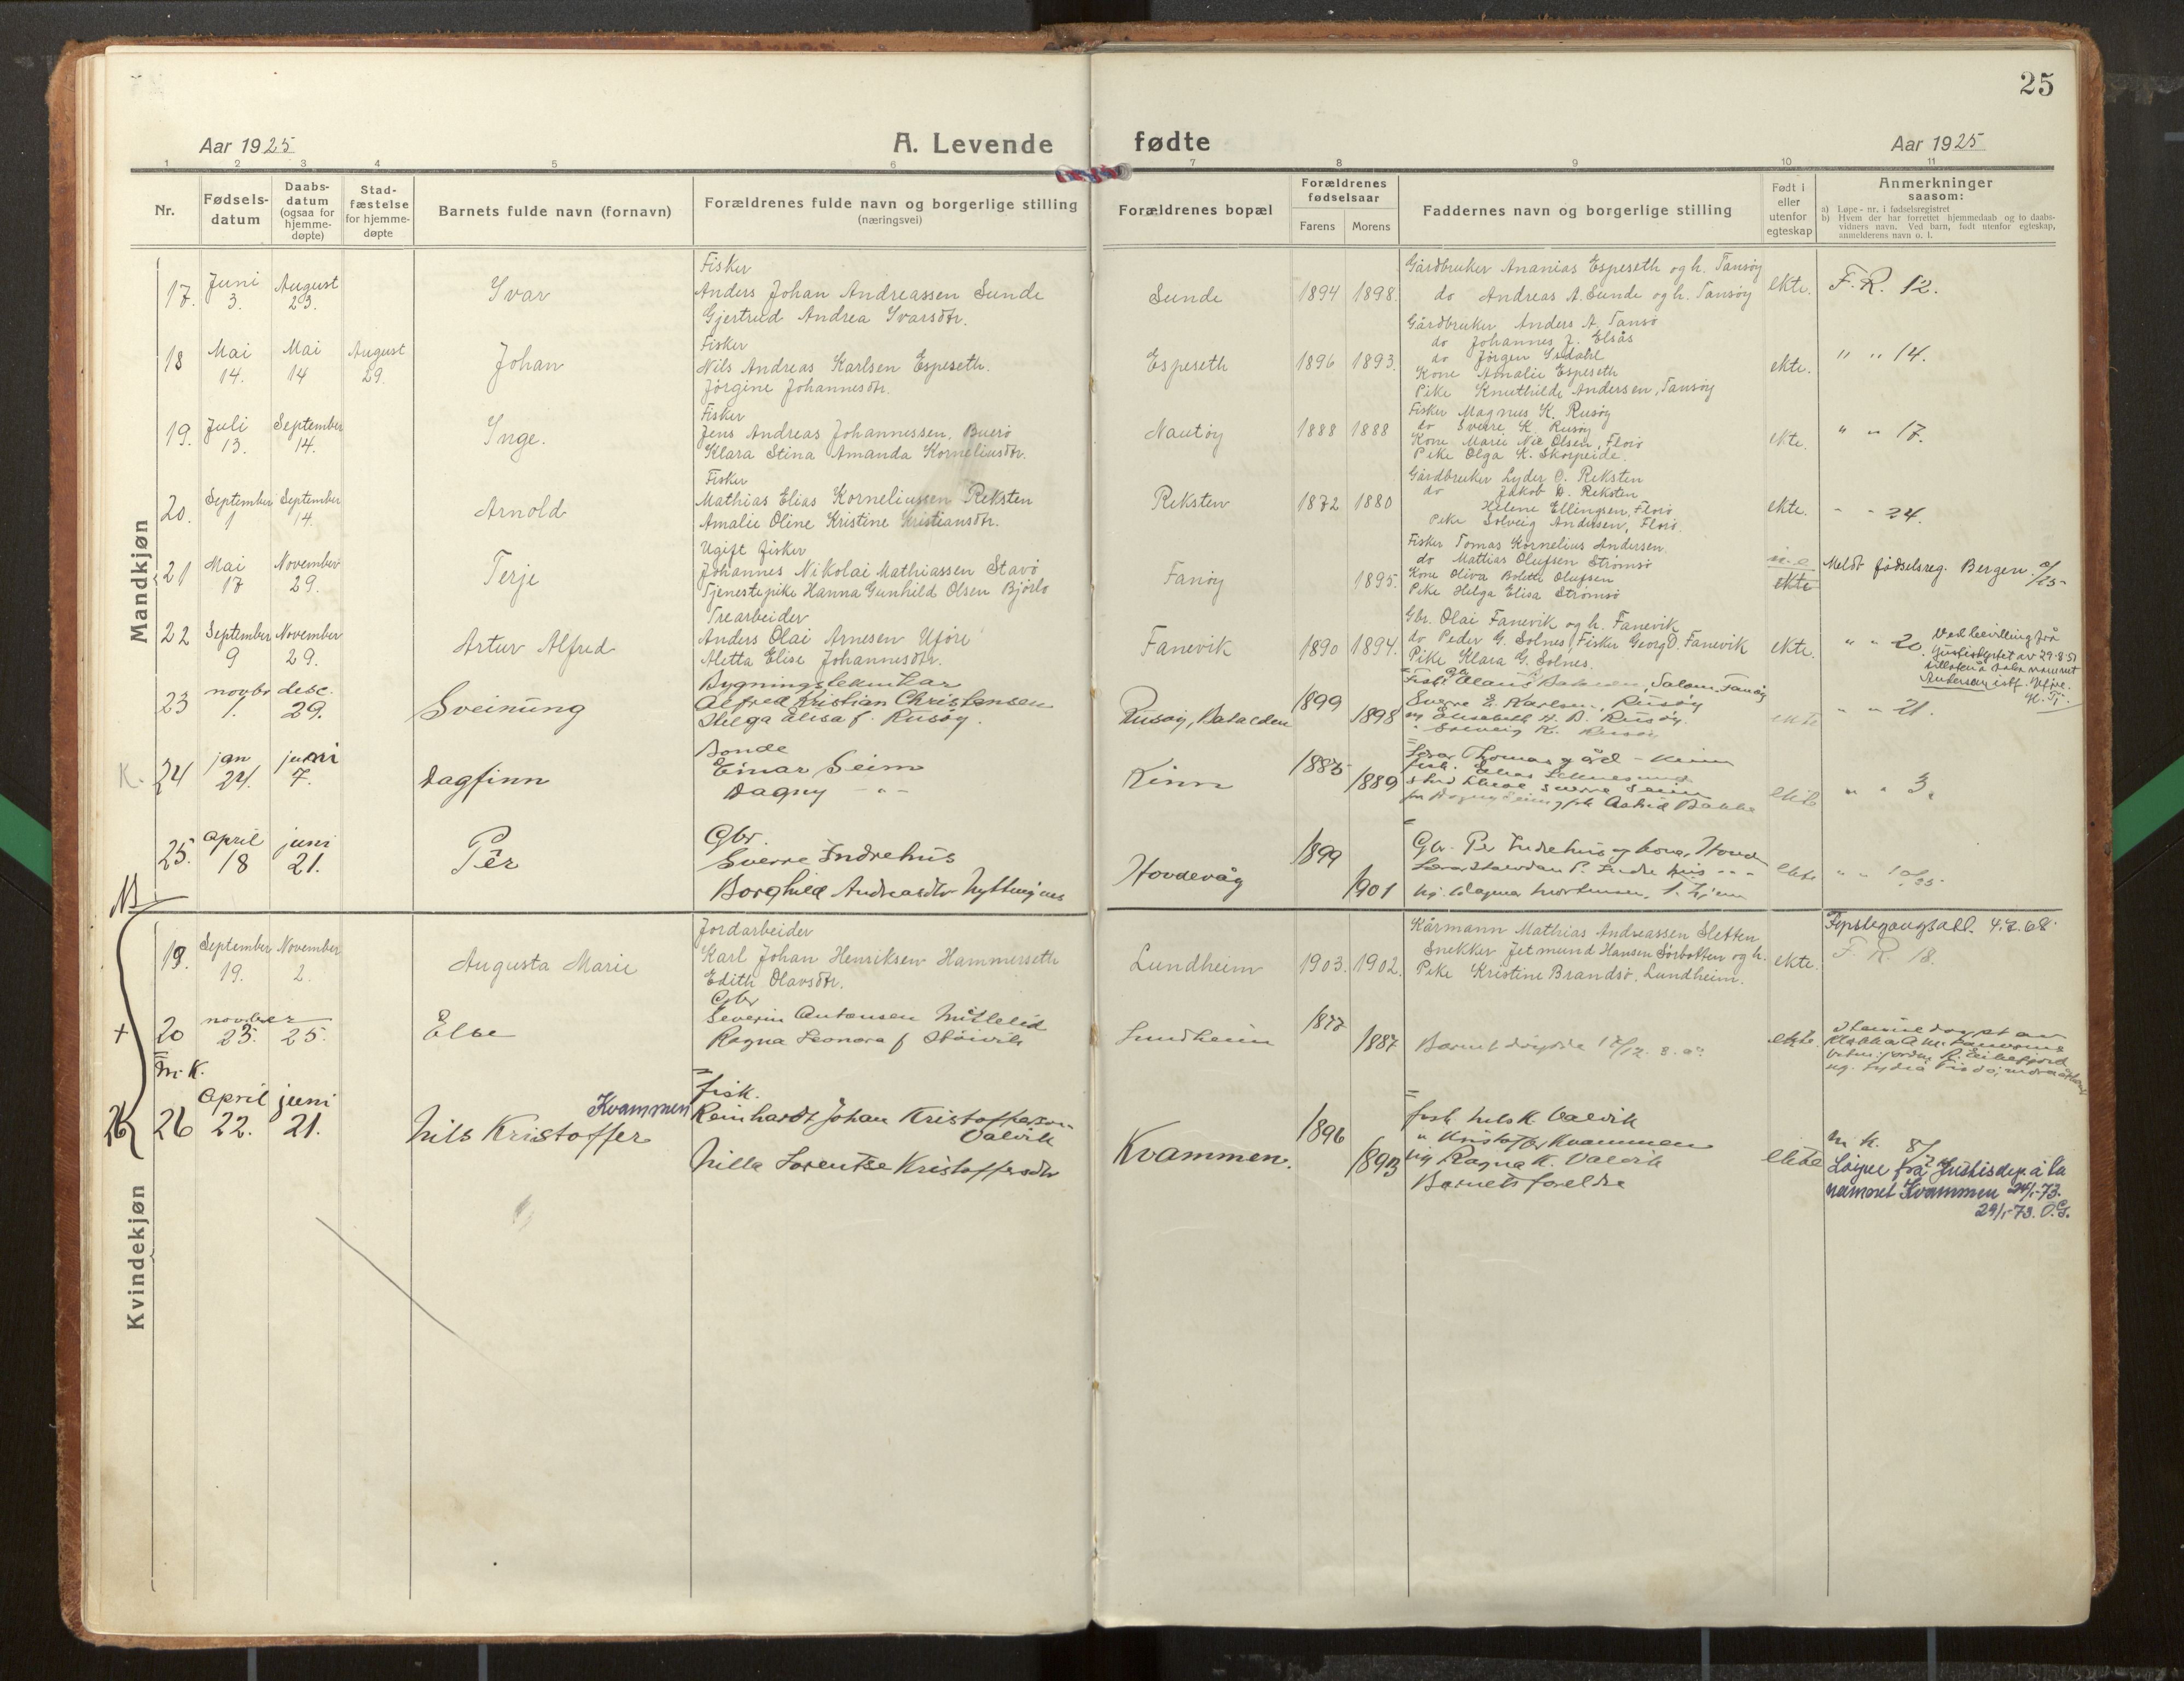 25
Aar 1925
A. Levende fødte
Aar 1925
1 2 3 4 5 6 7 8 9 10 11
Nr.
Fødselsdatum
Daabsdatum (ogsaa for hjemmedøpte)
Stadfæstelse for hjemmedøpte
Barnets fulde navn (fornavn)
Forældrenes fulde navn og borgerlige stilling
(næringsvei)
Forældrenes bopæl
Forældrenes fødselsaar
Farens Morens
Faddernes navn og borgerlige stilling
Født i eller utenfor egteskap
Anmerkninger saasom:
a) Løpe-nr. i fødselsregistret
b) Hvem der har forrettet hjemmedaab og to daabsvidners navn. Ved barn, født utenfor egteskap, anmelderens navn o. l.
Mandkjøn
17. Juni 3. August 23. Ivar
Fisker
Anders Johan Andreassen Sunde
Gjertrud Andrea Ivarsdtr.
Sunde 1894 1898.
Gårdbruker Ananias Espeseth og h. Tansøy
do Andreas A. Sunde og h. Tansøy
ekte. F. R. 12.
18 Mai 14. Mai 14 August 29. Johan
Fisker
Nils Andreas Karlsen Espeseth.
Jørgine Johannesdtr.
Espeseth 1896 1893.
Gårdbruker Anders A. Tansø
do Johannes J. Elsås
do Jørgen
Kone Amalie Espeseth
Pike Knuthilde Andersen, Tansøy
ekte. " " 14.
19. Juli 13. September 14. Inge.
Fisker
Jens Andreas Johannessen, Buerø
Klara Stina Amanda Korneliusdtr.
Nautøy 1888 1888
Fisker Magnus K. Rusøy
do Sverre K. Rusøy
Kone Marie Nic Olsen, Florø
Pike Olga K. Skorpeide.
ekte. " " 17.
20. September 1 September 14. Arnold
Fisker
Mathias Elias Korneliussen Reksten
Amalie Oline Kristine Kristiansdtr.
Reksten 1872 1880
Gårdbruker Lyder O. Reksten
do Jakob D. Reksten
Helene Ellingsen, Florø
Pike Solveig Andersen, Florø.
ekte. " " 24.
21 Mai 17 November 29. Terje
Ugift fisker
Johannes Nikolai Mathiassen Stavø
Tjenestepike Hanna Gunhild Olsen Bjørlo
Fanøy 1895.
Fisker Tomas Kornelius Andersen.
do Mattias Olufsen Strømsø
Kone Oliva Bolette Olufsen
Pike Helga Elisa Strømsø
u. e. ekte Meldt fødselsreg. Bergen
22 September 9 November 29. Artur Alfred
Trearbeider
Anders Olai Arnesen Uføre
Aletta Elise Johannesdtr.
Fanevik 1890 1894.
Gbr. Olai Fanevik og h. Fanevik
do Peder G. Solnes, Fisker Georg D. Fanevik
Pike Klara G. Solnes.
ekte. " " 20.
Ved bevilling frå
Justisdeptet av 29-8-51
Andersen istf. Uføre.
23 novbr 1. desc. 29. Sveinung
Bygningstekniker
Alfred Kristian Christensen
Helga Elisa f. Rusøy.
Rusøy, Batalden 1899 1898
Sverre E. Karlsen, Rusøy
ekte " " 21.
K. 24 jan 24. juni 7. Dagfinn
Bonde
Einar Seim
Dagny - " -
Kinn 1885 1889
ekte " " 3.
25. April 18 juni 21. Per
Gbr.
Sverre Indrehus
Borghild Andreasdtr
Hovdevåg 1899 1901
Gbr. Per Indrehus og kona, Hovd
ekte " " 10/25
NB
Kvindekjøn
19. September 19. November 2. Augusta Marie
Jordarbeider
Karl Johan Henriksen Hammerseth
Edith Olavsdtr.
Lundheim 1903. 1902.
Kårmann Mathias Andreassen Sletten
Snekker Jetmund Hansen Sørbotten og h.
Pike Kristine Brandsø, Lundheim.
ekte. 4.7.68.
F. R. 18.
+ 20 november 23. 25. Else
Gbr
Severin Antonsen
Ragna Leonora f
Lundheim 1877 1887
Barnet døydde
ekte.
M. K.
26 26 April 22. juni 21. Nils Kristoffer Kvammen
fisk.
Reinhardt Johan Kristofferson Valvik
Nilla Lorentse Kristoffersdtr
Kvammen. 1896 1893
fisk Nils K. Valvik
" Kristoffer Kvammen
ug Ragna K. Valvik
Barnets foreldre
ekte
M. K.
Løyve frå Justisdep. å ta
namnet Kvammen 24/1-73.
29/1-73. O.G.